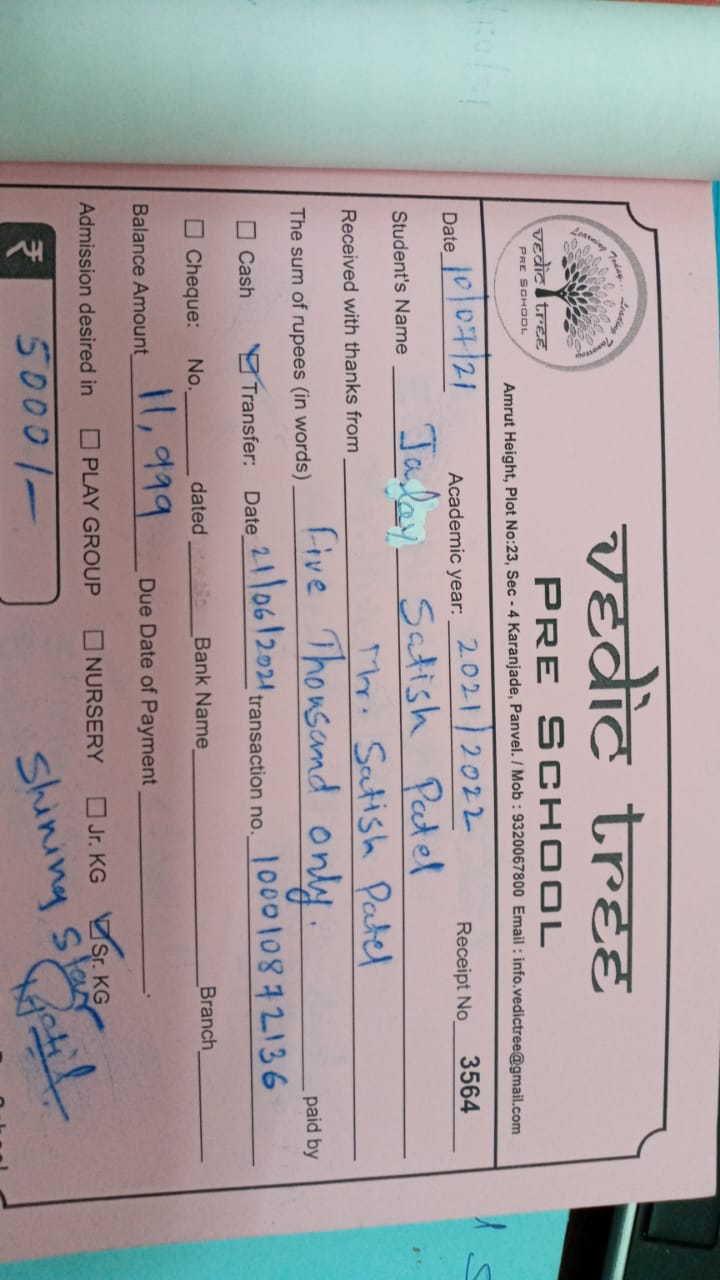 Learning Today... Leading Tomorrow
vedic tree
PRE SCHOOL
vedic tree
PRE SCHOOL
Amrut Height, Plot No:23, Sec - 4 Karanjade, Panvel. / Mob : 9320067800 Email : info.vedictree@gmail.com
Date 10/07/21 Academic year: 2021/2022 Receipt No 3564
Student's Name Satish Patel
Received with thanks from Mr. Satish Patel
The sum of rupees (in words) Five Thousand only. paid by
☐ Cash ☑ Transfer: Date 21/06/2021 transaction no. 100010872136
☐ Cheque: No. dated Bank Name Branch
Balance Amount 11,999 Due Date of Payment .
Admission desired in ☐ PLAY GROUP ☐ NURSERY ☐ Jr. KG ☑ Sr. KG
₹ 5000/- Shining Star